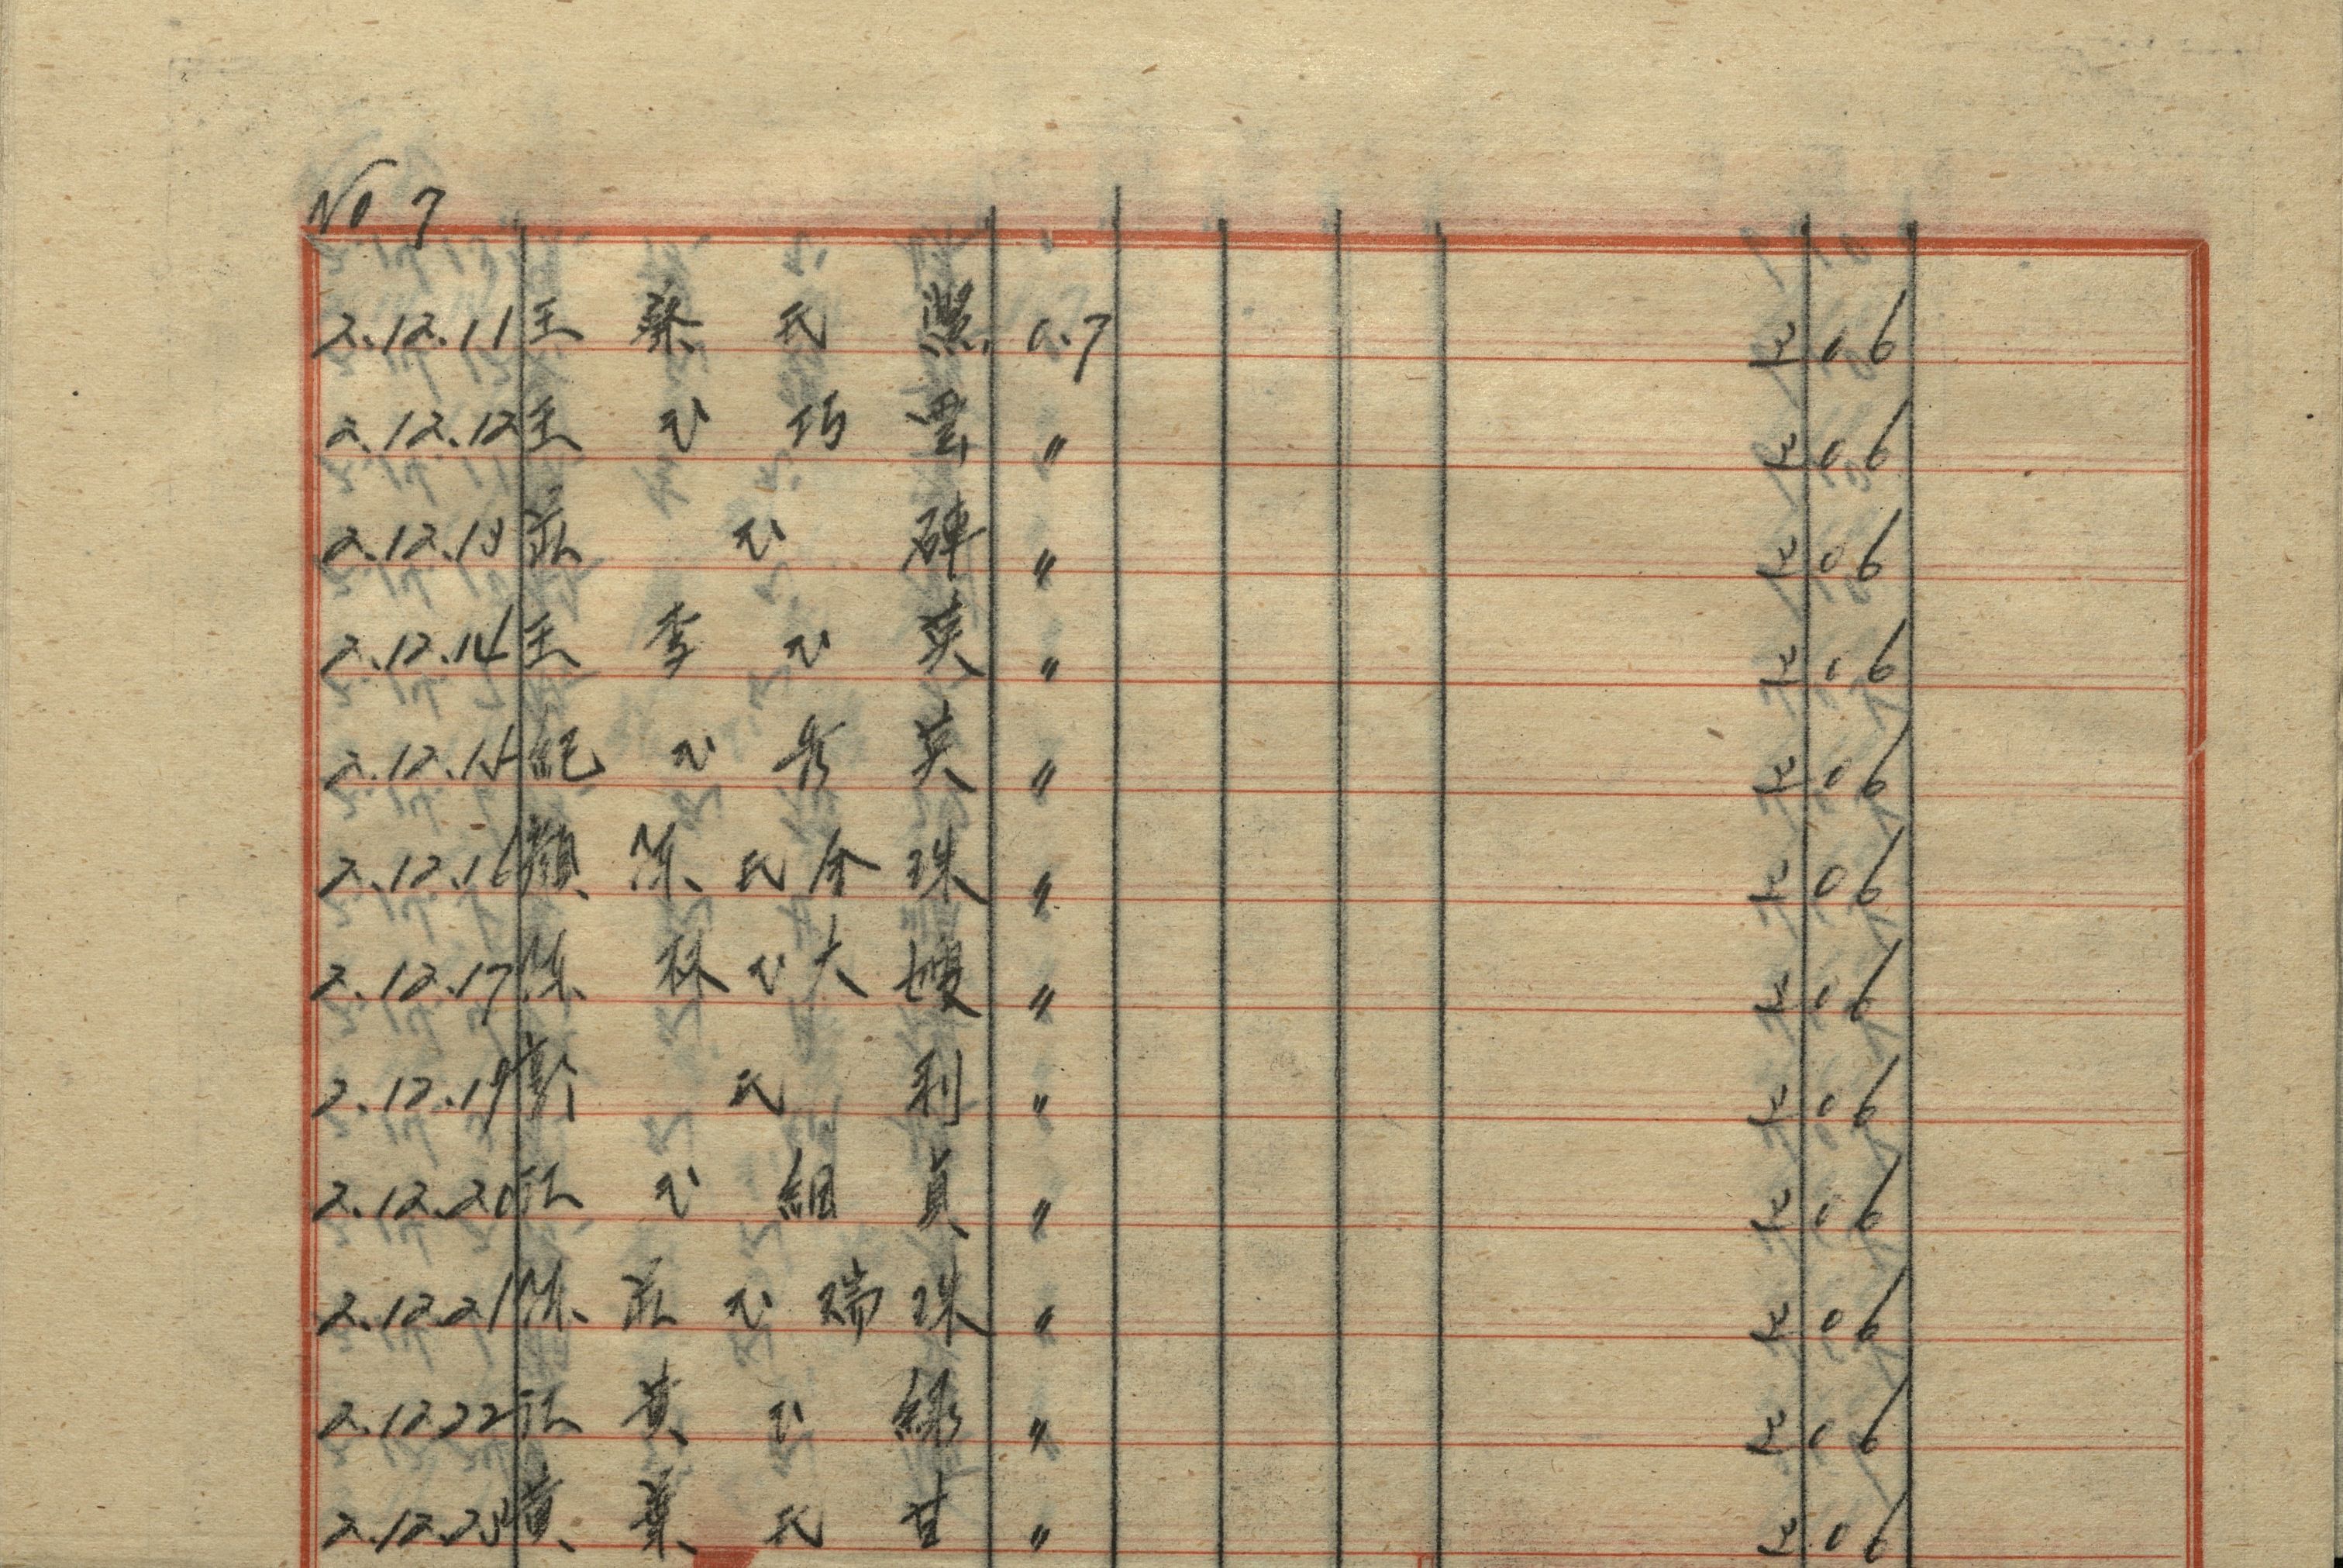 No 7
2.12.11 王蔡氏 0.7 2 06
2.12.12 王氏巧雲 〃 2 06
2.12.13 莊氏碑 〃 2 06
2.12.14 王李氏英 〃 2 06
2.12.15 紀氏秀英 〃 2 06
2.12.16 顏陳氏金珠 〃 2 06
2.12.17 陳林氏大嫂 〃 2 06
2.12.19 彭氏利 〃 2 06
2.12.20 江氏組貞 〃 2 06
2.12.21 陳莊氏瑞珠 〃 2 06
2.12.22 江黃氏綠 〃 2 06
2.12.23 黃葉氏甘 〃 2 06